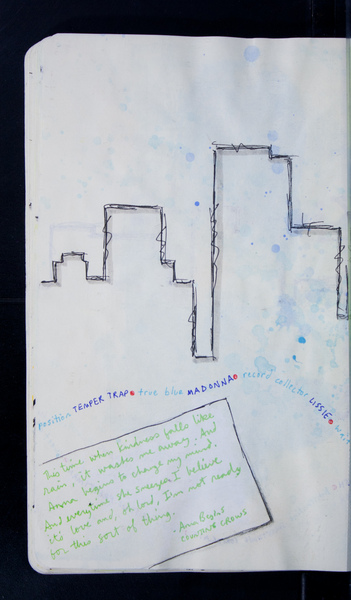 position TEMPER TRAP • true blue MADONNA • record collector LISSIE •
This time when kindness falls like
rain, it washes me away. And
Anna begins to change my mind.
And everytime she sneezes I believe
it's love and, oh lord, I'm not ready
for this sort of thing.
- Anna Begins
COUNTING CROWS